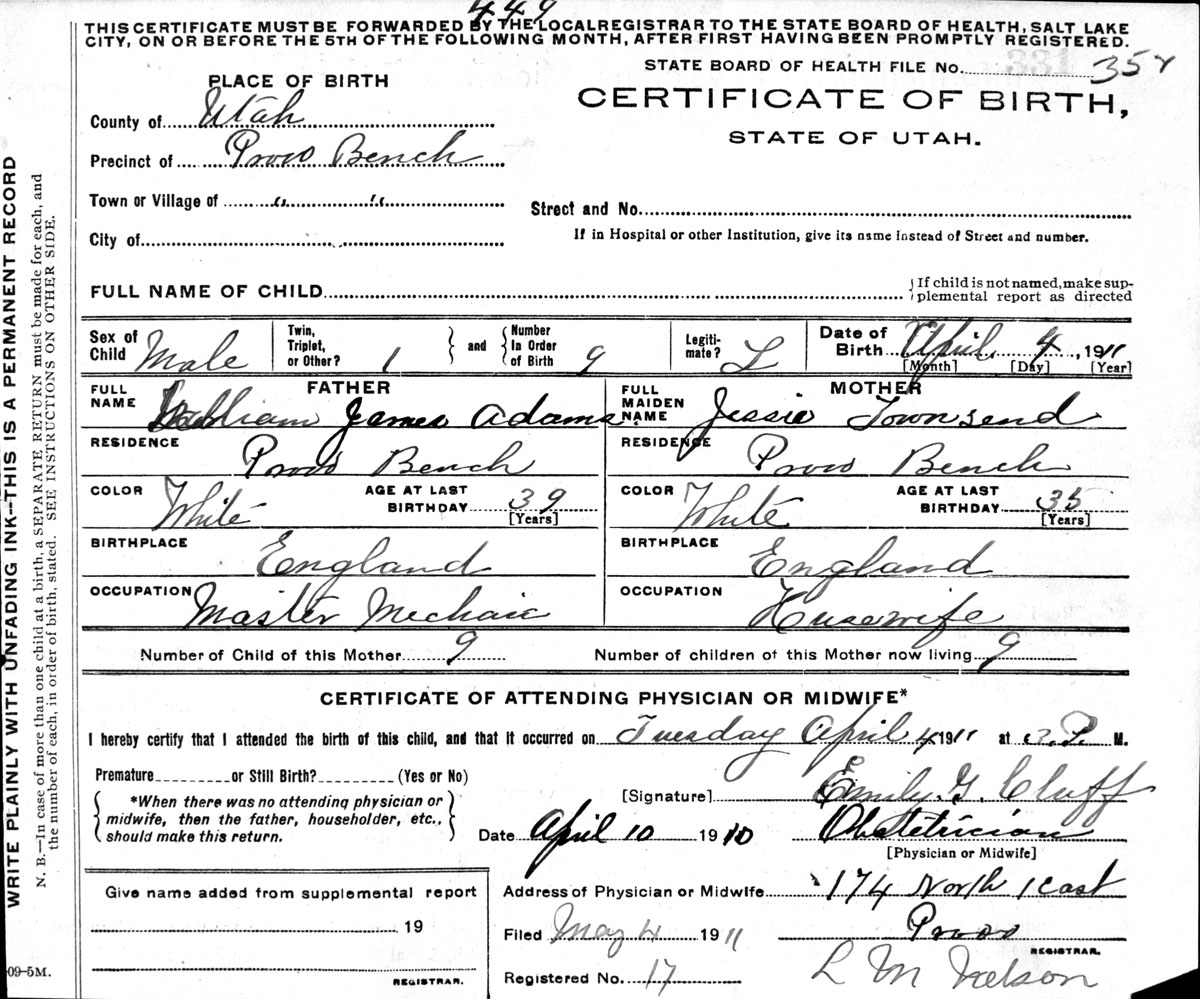 449
THIS CERTIFICATE MUST BE FORWARDED BY THE LOCAL REGISTRAR TO THE STATE BOARD OF HEALTH, SALT LAKE
CITY, ON OR BEFORE THE 5TH OF THE FOLLOWING MONTH, AFTER FIRST HAVING BEEN PROMPTLY REGISTERED.
STATE BOARD OF HEALTH FILE No. 331 352
PLACE OF BIRTH
CERTIFICATE OF BIRTH,
STATE OF UTAH.
County of Utah
Precinct of Provo Bench
Town or Village of " "
Street and No.
City of
If in Hospital or other Institution, give its name instead of Street and number.
FULL NAME OF CHILD
If child is not named, make sup-
plemental report as directed
Sex of Child Male
Twin, Triplet, or Other? 1 and Number In Order of Birth 9
Legiti-mate? L
Date of Birth April 4, 1911
[Month] [Day] [Year]
FATHER
FULL NAME William James Adams
RESIDENCE Provo Bench
COLOR White AGE AT LAST BIRTHDAY 39
[Years]
BIRTHPLACE England
OCCUPATION Master Mechaic
MOTHER
FULL MAIDEN NAME Jessie Townsend
RESIDENCE Provo Bench
COLOR White AGE AT LAST BIRTHDAY 35
[Years]
BIRTHPLACE England
OCCUPATION Husewife
Number of Child of this Mother 9 Number of children of this Mother now living 9
CERTIFICATE OF ATTENDING PHYSICIAN OR MIDWIFE*
I hereby certify that I attended the birth of this child, and that it occurred on Tuesday April 4 1911 at 3 P. M.
Premature or Still Birth? (Yes or No)
*When there was no attending physician or
midwife, then the father, householder, etc.,
should make this return.
[Signature] Emily G. Cluff
Date April 10 1910 Obstetrician
[Physician or Midwife]
Address of Physician or Midwife 174 North 1 East
Filed May 4 1911 Provo
REGISTRAR.
Registered No. 17 L M Nelson
Give name added from supplemental report
19
REGISTRAR.
09-5M.
WRITE PLAINLY WITH UNFADING INK--THIS IS A PERMANENT RECORD
N. B.—In case of more than one child at a birth, a SEPARATE RETURN must be made for each, and
the number of each, in order of birth, stated. SEE INSTRUCTIONS ON OTHER SIDE.